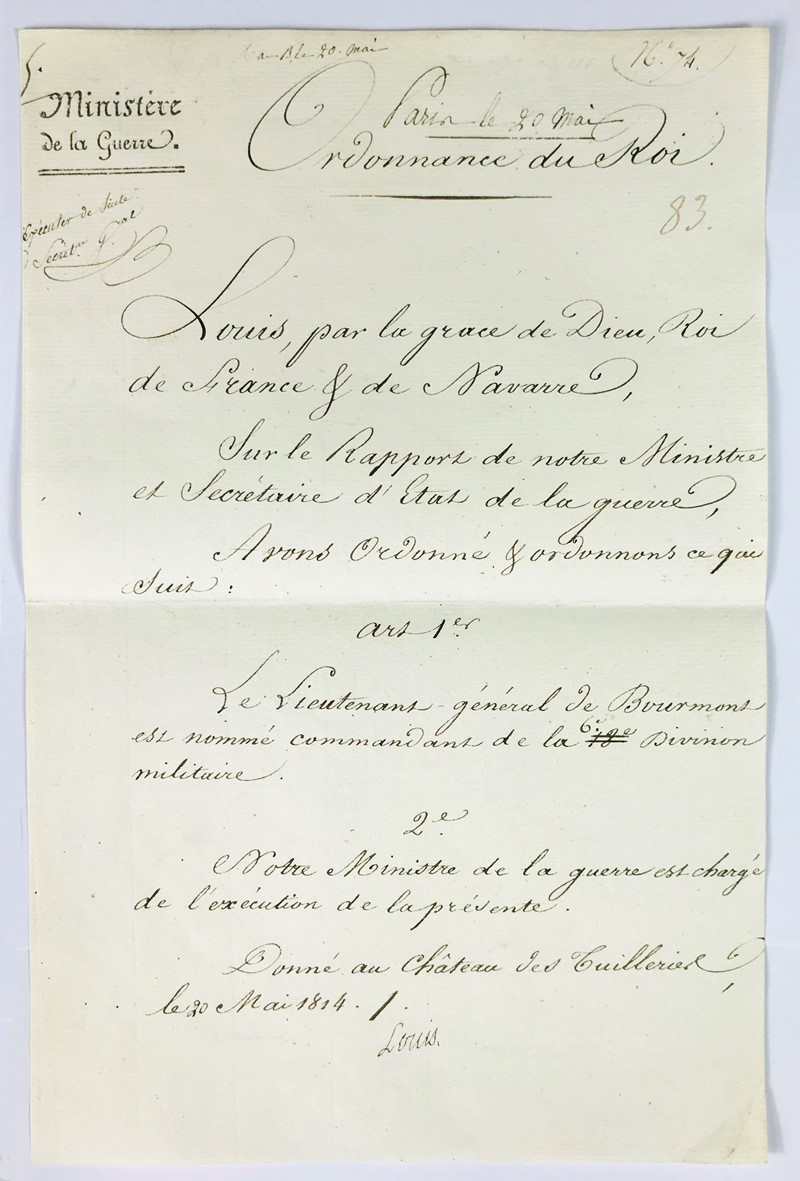 le 20. mai
Ministère
de la Guerre.
Paris le 20 Mai
Ordonnance du Roi.
83.
Exécuter de suite
Secrét. G.al
Louis, par la grace de Dieu, Roi
de France & de Navarre,
Sur le Rapport de notre Ministre
et Secrétaire d'Etat de la guerre,
Avons Ordonné & ordonnons ce qui
Suit :
art 1er.
Le Lieutenant-général de Bourmont
est nommé commandant de la 6e. Division
militaire.
2e.
Notre Ministre de la guerre est chargé
de l'exécution de la présente.
Donné au Château des Tuilleries,
le 20 Mai 1814. /.
Louis.